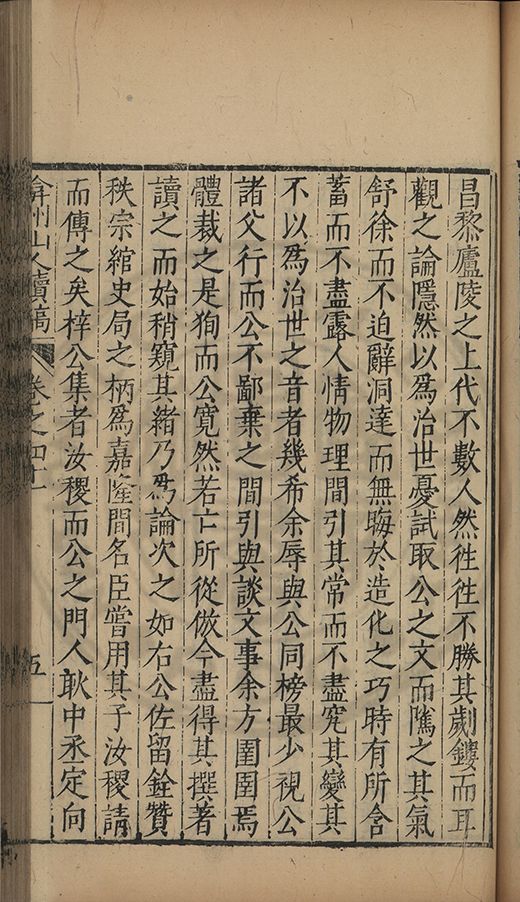 昌黎廬陵之上代不數人然徃徃不勝其劌鏤而耳
觀之論隱然以爲治世憂試取公之文而隲之其氣
舒徐而不迫辭洞達而無晦於造化之巧時有所含
蓄而不盡露人情物理間引其常而不盡究其變其
不以爲治世之音者幾希余辱與公同榜最少視公
諸父行而公不鄙棄之間引與談文事余方圍圍焉
體裁之是狥而公寛然若亡所從倣今盡得其撰著
讀之而始稍窺其緒乃爲論次之如右公佐留銓贊
秩宗綰史局之柄爲嘉隆間名臣嘗用其子汝稷請
而傳之矣梓公集者汝稷而公之門人耿中丞定向
弇州山人續稿 卷之四十一 五